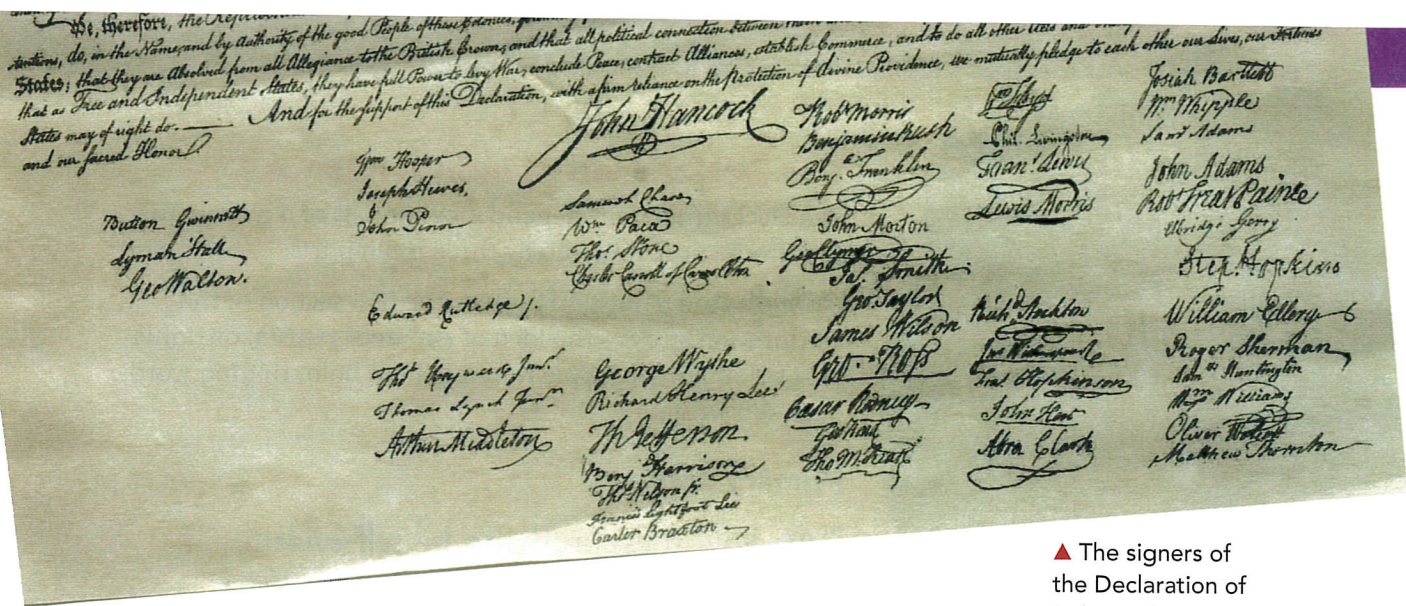 We, therefore, the Represen
tions, do, in the Name, and by Authority of the good People of these Colonies,
States; that they are Absolved from all Allegiance to the British Crown, and that all political connection between them
that as Free and Independent States, they have full Power to levy War, conclude Peace, contract Alliances, establish Commerce, and to do all other Acts and
States may of right do. — And for the support of this Declaration, with a firm reliance on the Protection of divine Providence, we mutually pledge to each other our Lives, our Fortunes
and our sacred Honor.
Button Gwinnett
Lyman Hall
Geo Walton.
Wm Hooper
Joseph Hewes,
John Penn
Edward Rutledge /.
Thos Heyward Junr.
Thomas Lynch Junr.
Arthur Middleton
John Hancock
Samuel Chase
Wm. Paca
Thos. Stone
Charles Carroll of Carrollton
George Wythe
Richard Henry Lee
Th Jefferson
Benj Harrison
Thos Nelson jr.
Francis Lightfoot Lee
Carter Braxton
Robt Morris
Benjamin Rush
Benj. Franklin
John Morton
Geo Clymer
Jas. Smith
Geo. Taylor
James Wilson
Geo. Ross
Caesar Rodney
Geo Read
Tho M:Kean
Phil. Livingston
Frans. Lewis
Lewis Morris
Richd. Stockton
Jno Witherspoon
Fras. Hopkinson
John Hart
Abra Clark
Josiah Bartlett
Wm. Whipple
Saml Adams
John Adams
Robt Treat Paine
Elbridge Gerry
Step. Hopkins
William Ellery
Roger Sherman
Samel Huntington
Wm Williams
Oliver Wolcott
Matthew Thornton
▲ The signers of
the Declaration of